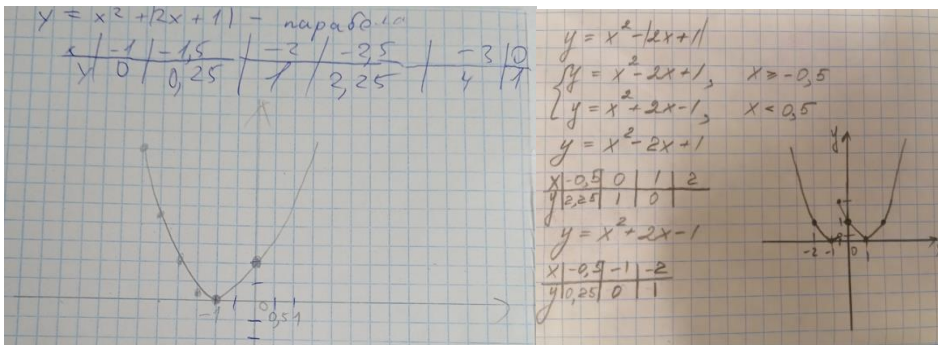 y = x² + |2x + 1| - парабола
x | -1 | -1,5 | -2 | -2,5 | -3 | 0
y | 0 | 0,25 | 1 | 2,25 | 4 | 1
-1 0 0,5 1
y = x² - |2x + 1|
{ y = x² - 2x + 1, x ≥ -0,5
{ y = x² + 2x - 1, x < 0,5
y = x² - 2x + 1
x | -0,5 | 0 | 1 | 2
y | 2,25 | 1 | 0 |
y = x² + 2x - 1
x | -0,5 | -1 | -2
y | 0,25 | 0 | 1
y
1
-2 -1 0 1